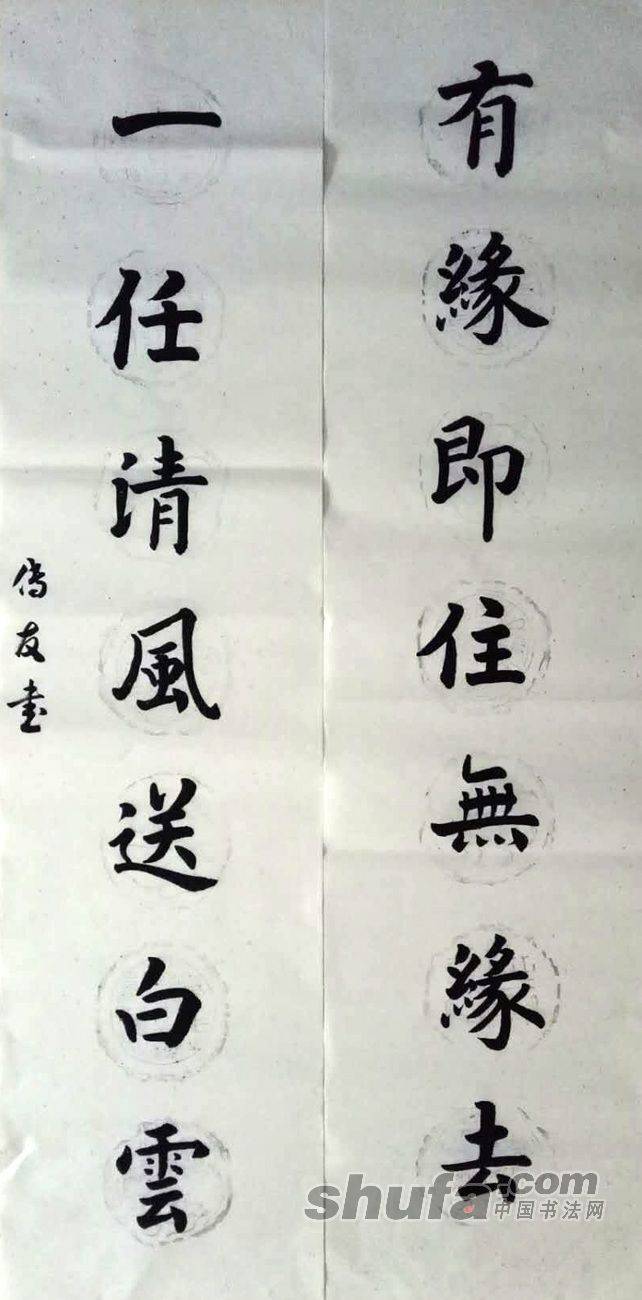 有緣即住無緣去
一任清風送白雲
傳友書
shufa.com
中国书法网